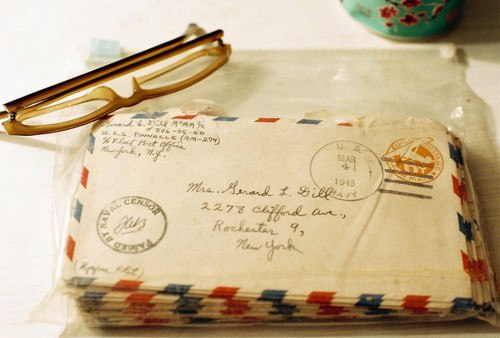 Gerard L. Dill MoMM 3/c
# 806-05-60
U.S.S. PINNACLE (AM-274)
℅ Fleet Post Office
New York, N.Y.
U.S.
MAR
4
1945
NAVY
Mrs. Gerard L. Dill
2278 Clifford Ave.,
Rochester 9,
New York
PASSED BY NAVAL CENSOR